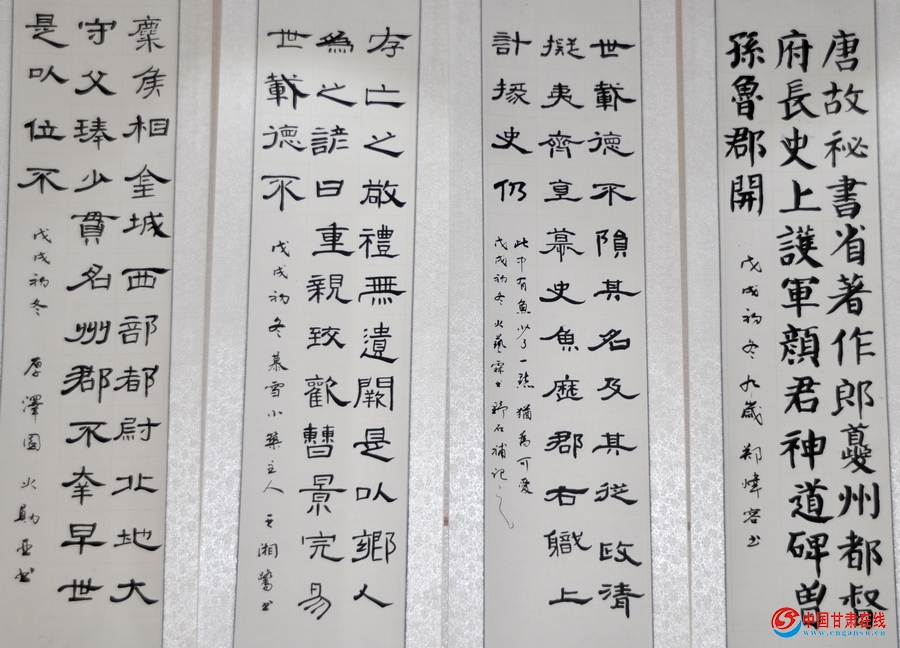 唐故祕書省著作郎夔州都督
府長史上護軍顔君神道碑曽
孫魯郡開
戊戌初冬 九歲 鄭煒容书
世載德不隕其名及其從政清
擬夷齊直慕史魚歷郡右職上
計掾史仍
此中有魚少了一點 猶為可愛
戊戌初冬火藝霖书 碎石補記之
存亡之敬禮無遺闕是以鄉人
為之諺曰重親致歡曹景完易
世載德不
戊戌初冬慕雪小築主人 王湘鷺书
麋侯相金城西部都尉北地大
守父琫少貫名州郡不幸早世
是以位不
戊戌初冬 厚澤園 火勛亚书
中国甘肃在线
www.cngansu.cn